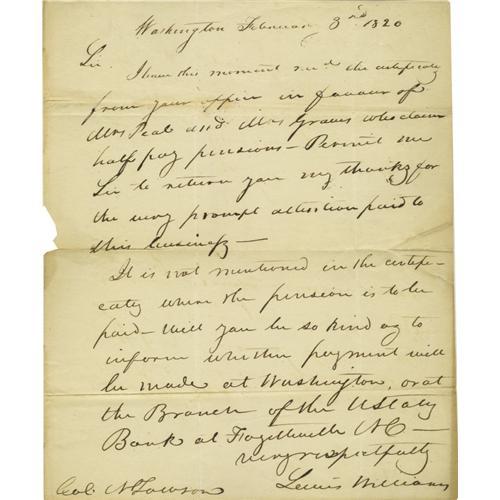 Washington February 3rd 1820
Sir.
I have this moment recd the certificates
from your office in favour of
Mrs Peal and Mrs Graves who claim
half pay pensions - Permit me
Sir to return you my thanks for
the very prompt attention paid to
this business -
It is not mentioned in the certifi-
cates where the pension is to be
paid - Will you be so kind as to
inform whether payment will
be made at Washington, or at
the Branch of the U States
Bank at Fayetteville N C -
very respectfully
Lewis Williams
Col.